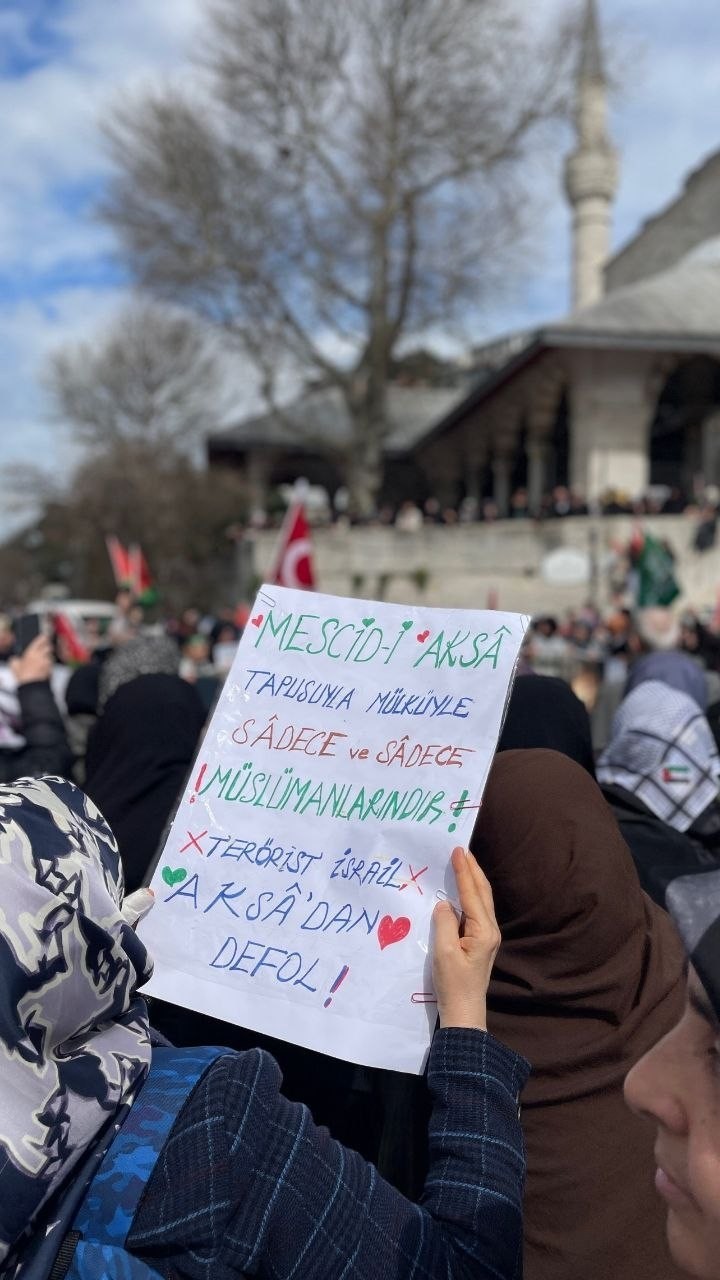 MESCİD-İ AKSÂ
TAPUSUYLA MÜLKÜYLE
SÂDECE ve SÂDECE
!MÜSLÜMANLARINDIR!
TERÖRİST İSRAİL
AKSÂ'DAN
DEFOL!